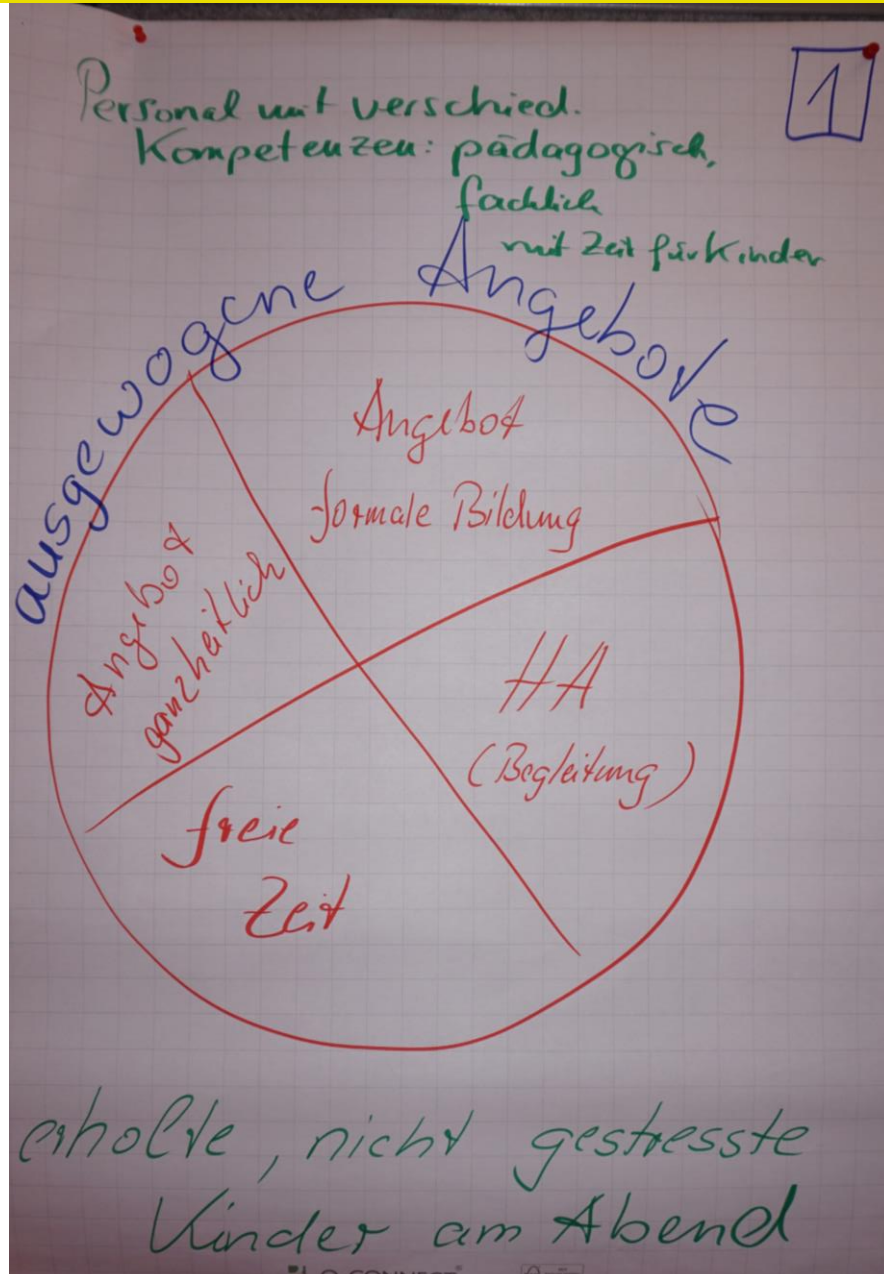 1
Personal mit verschied.
Kompetenzen: pädagogisch,
fachlich
mit Zeit für Kinder
ausgewogene Angebote
Angebot
formale Bildung
Angebot
ganzheitlich
HA
(Begleitung)
freie
Zeit
erholte, nicht gestresste
Kinder am Abend